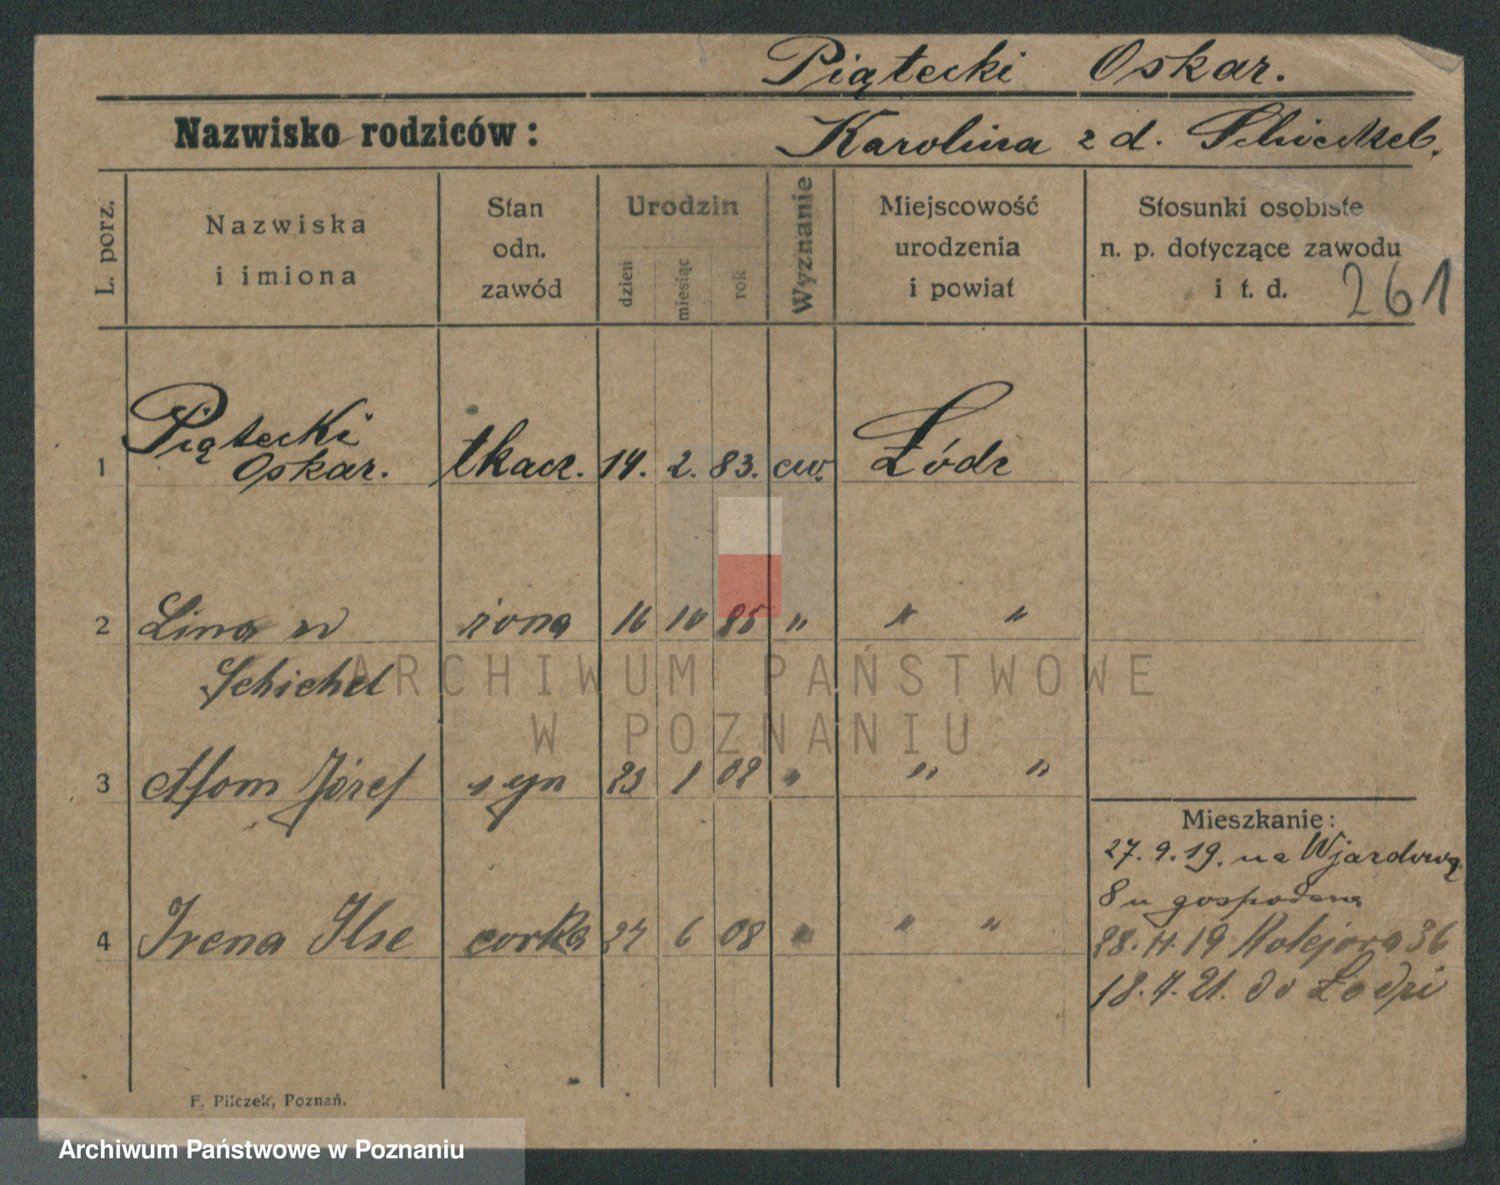 Piątecki Oskar.
Nazwisko rodziców: Karolina z d.
L. porz.
Nazwiska
i imiona
Stan
odn.
zawód
Urodzin
dzień
miesiąc
rok
Wyznanie
Miejscowość
urodzenia
i powiat
Stosunki osobiste
n. p. dotyczące zawodu
i t. d.
261
1 Piątecki
Oskar. tkacz. 14. 2. 83. ew. Łódz
2 Lina żona 16 10 85 " " "
Schichel
3 Józef syn 23 1 02 " " "
4 Irena Ilse corka 27 6 08 " " "
Mieszkanie:
27. 9. 19. na Wjazdową
8 u gospodena
19 Kolejora 36
18. 7. 21. do Łodzi
F. Pilczek, Poznań.
ARCHIWUM PAŃSTWOWE
W POZNANIU
Archiwum Państwowe w Poznaniu